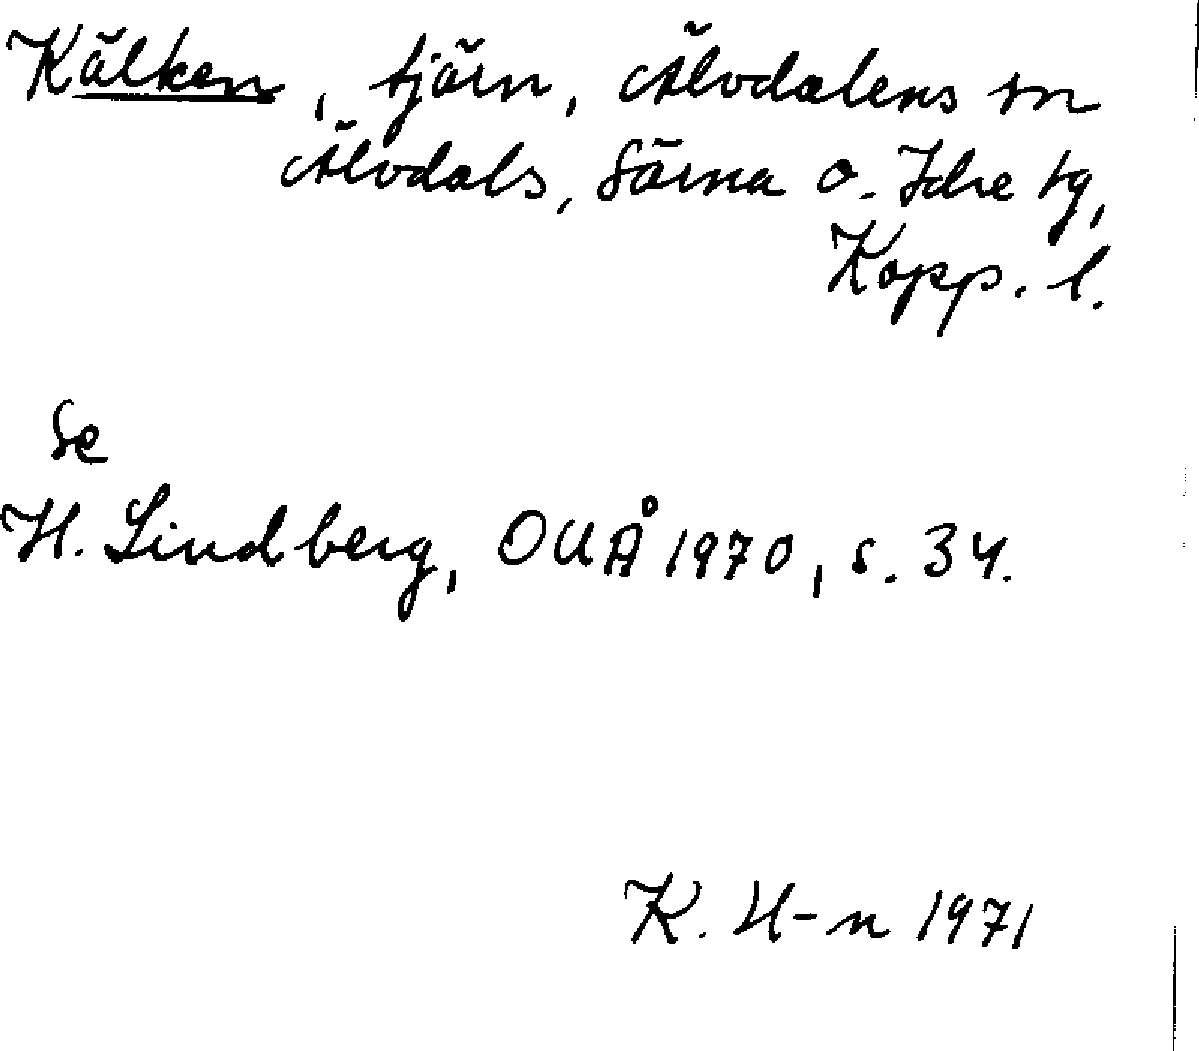 Kälken, tjärn, Älvdalens sn
Älvdals, Särna o. Idre tg,
Kopp. l.
Se
H. Lindberg, OUÅ 1970, s. 34.
K. H-n 1971